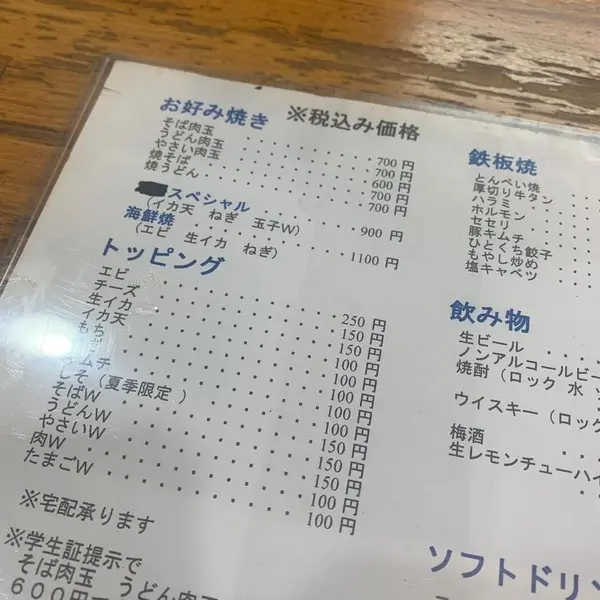 お好み焼き ※税込み価格
そば肉玉 700 円
うどん肉玉 700 円
やさい肉玉 600 円
焼そば 700 円
焼うどん 700 円
スペシャル 900 円
(イカ天 ねぎ 玉子W)
海鮮焼 1100 円
(エビ 生イカ ねぎ)
トッピング
エビ 250 円
チーズ 150 円
生イカ 150 円
イカ天 150 円
もち 100 円
100 円
ムチ 100 円
しそ(夏季限定 ) 100 円
そばW 150 円
うどんW 150 円
やさいW 150 円
肉W 100 円
たまごW 100 円
※宅配承ります
※学生証提示で
そば肉玉 うどん肉玉
600円
鉄板焼
とんぺい焼
厚切り牛タン
ハラミ
ホルモン
セセリ
豚キムチ
ひとくち餃子
もやし炒め
塩キャベツ
飲み物
生ビール
ノンアルコールビー
焼酎(ロック 水 ソ
ウイスキー(ロック
梅酒
生レモンチューハイ
ソフトドリン